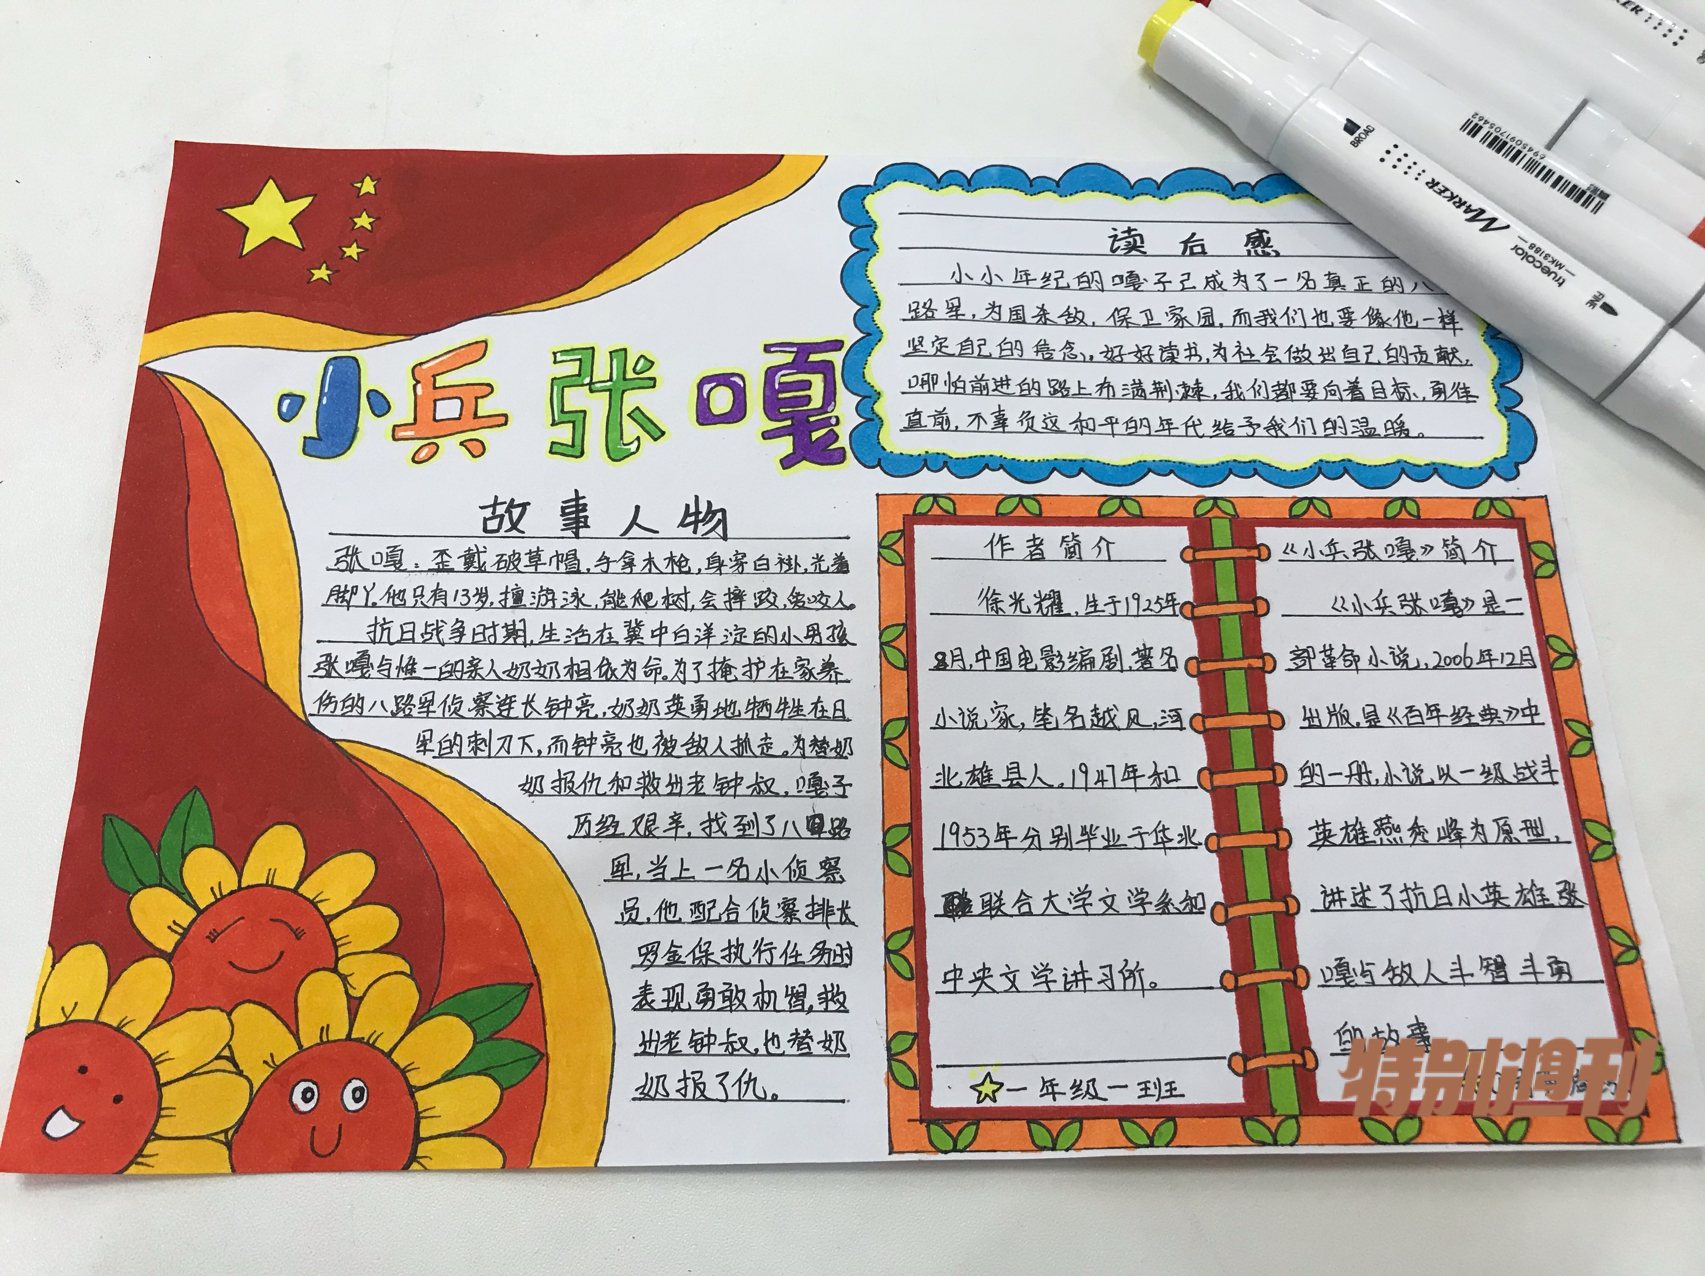 小兵张嘎
故事人物
张嘎：歪戴破草帽，手拿木枪，身穿白褂，光着
脚丫。他只有13岁，擅游泳，能爬树，会摔跤，兔咬人。
抗日战争时期，生活在冀中白洋淀的小男孩
张嘎与惟一的亲人奶奶相依为命。为了掩护在家养
伤的八路军侦察连长钟亮，奶奶英勇地牺牲在日
军的刺刀下，而钟亮也被敌人抓走。为替奶
奶报仇和救出老钟叔，嘎子
历经艰辛，找到了八路
军，当上一名小侦察
员，他配合侦察排长
罗金保执行任务时
表现勇敢机智，救
出老钟叔，也替奶
奶报了仇。
读后感
小小年纪的嘎子已成为了一名真正的八
路军，为国杀敌，保卫家园，而我们也要像他一样
坚定自己的信念，好好读书，为社会做出自己的贡献，
哪怕前进的路上布满荆棘，我们都要向着目标，勇往
直前，不辜负这和平的年代给予我们的温暖。
作者简介
徐光耀，生于1925年
8月，中国电影编剧，著名
小说家，笔名越风，河
北雄县人。1947年和
1953年分别毕业于华北
联合大学文学系和
中央文学讲习所。
一年级一班
《小兵张嘎》简介
《小兵张嘎》是一
部革命小说，2006年12月
出版，是《百年经典》中
的一册，小说以一级战斗
英雄燕秀峰为原型，
讲述了抗日小英雄张
嘎与敌人斗智斗勇
的故事
特别週刊
BROAD
MARKER
truecolor
MK3188
FINE
6945091705462